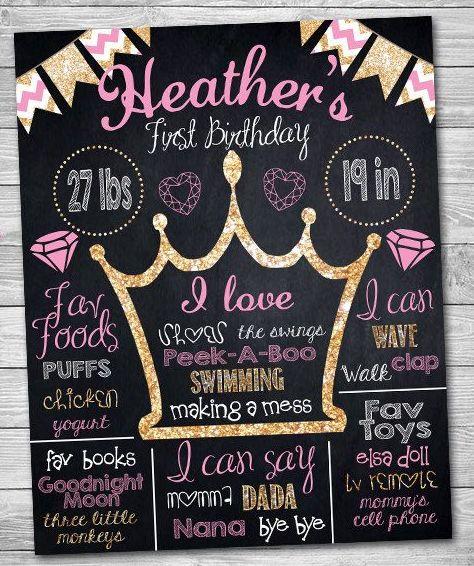 Heather's
First Birthday
27 lbs
19 in
Fav
Foods
PUFFS
chicken
yogurt
I love
shoes the swings
Peek-A-Boo
SWIMMING
making a mess
I can
WAVE
Walk clap
fav books
Goodnight
Moon
three little
monkeys
I can say
momma DADA
Nana bye bye
Fav
Toys
elsa doll
tv remote
mommy's
cell phone